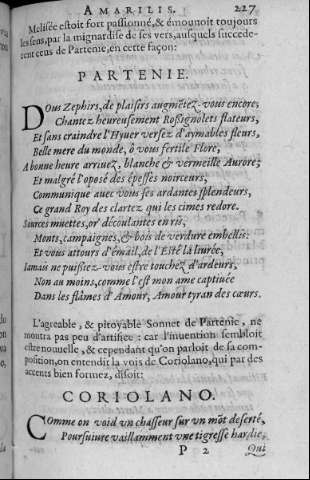 AMARILIS. 227
Melisée estoit fort passionné, & émouuoit toujours
les sens, par la mignardise de ses vers, ausquels succede-
rent ceus de Partenie, en cette façon:
PARTENIE.
DOus Zephirs, de plaisirs augmẽtez-vous encore,
Chantez heureusement Roßignolets flateurs,
Et sans craindre l'Hyuer versez d'aymables fleurs,
Belle mere du monde, ô vous fertile Flore,
A bonne heure arriuez, blanche & vermeille Aurore;
Et malgré l'oposé des épesses noirceurs,
Communique auec vous ses ardantes splendeurs,
Ce grand Roy des clartez qui les cimes redore.
Sources muettes, or' découlantes en ris,
Monts, campaignes, & bois de verdure embellis:
Et vous attours d'émail, de l'Esté la liurée,
Iamais ne puißiez-vous estre touchez d'ardeurs,
Non au moins, comme l'est mon ame captiuée
Dans les flâmes d'Amour, Amour tyran des cœurs.
L'agreable, & pitoyable Sonnet de Partenie, ne
montra pas peu d'artifice: car l'inuention sembloit
estre nouuelle, & cependant qu'on parloit de sa com-
position, on entendit la vois de Coriolano, qui par des
accents bien formez, disoit:
CORIOLANO.
COmme on void vn chasseur sur vn mõt deserté,
Poursuiure vaillamment vne tigresse hardie,
P 2 Qui